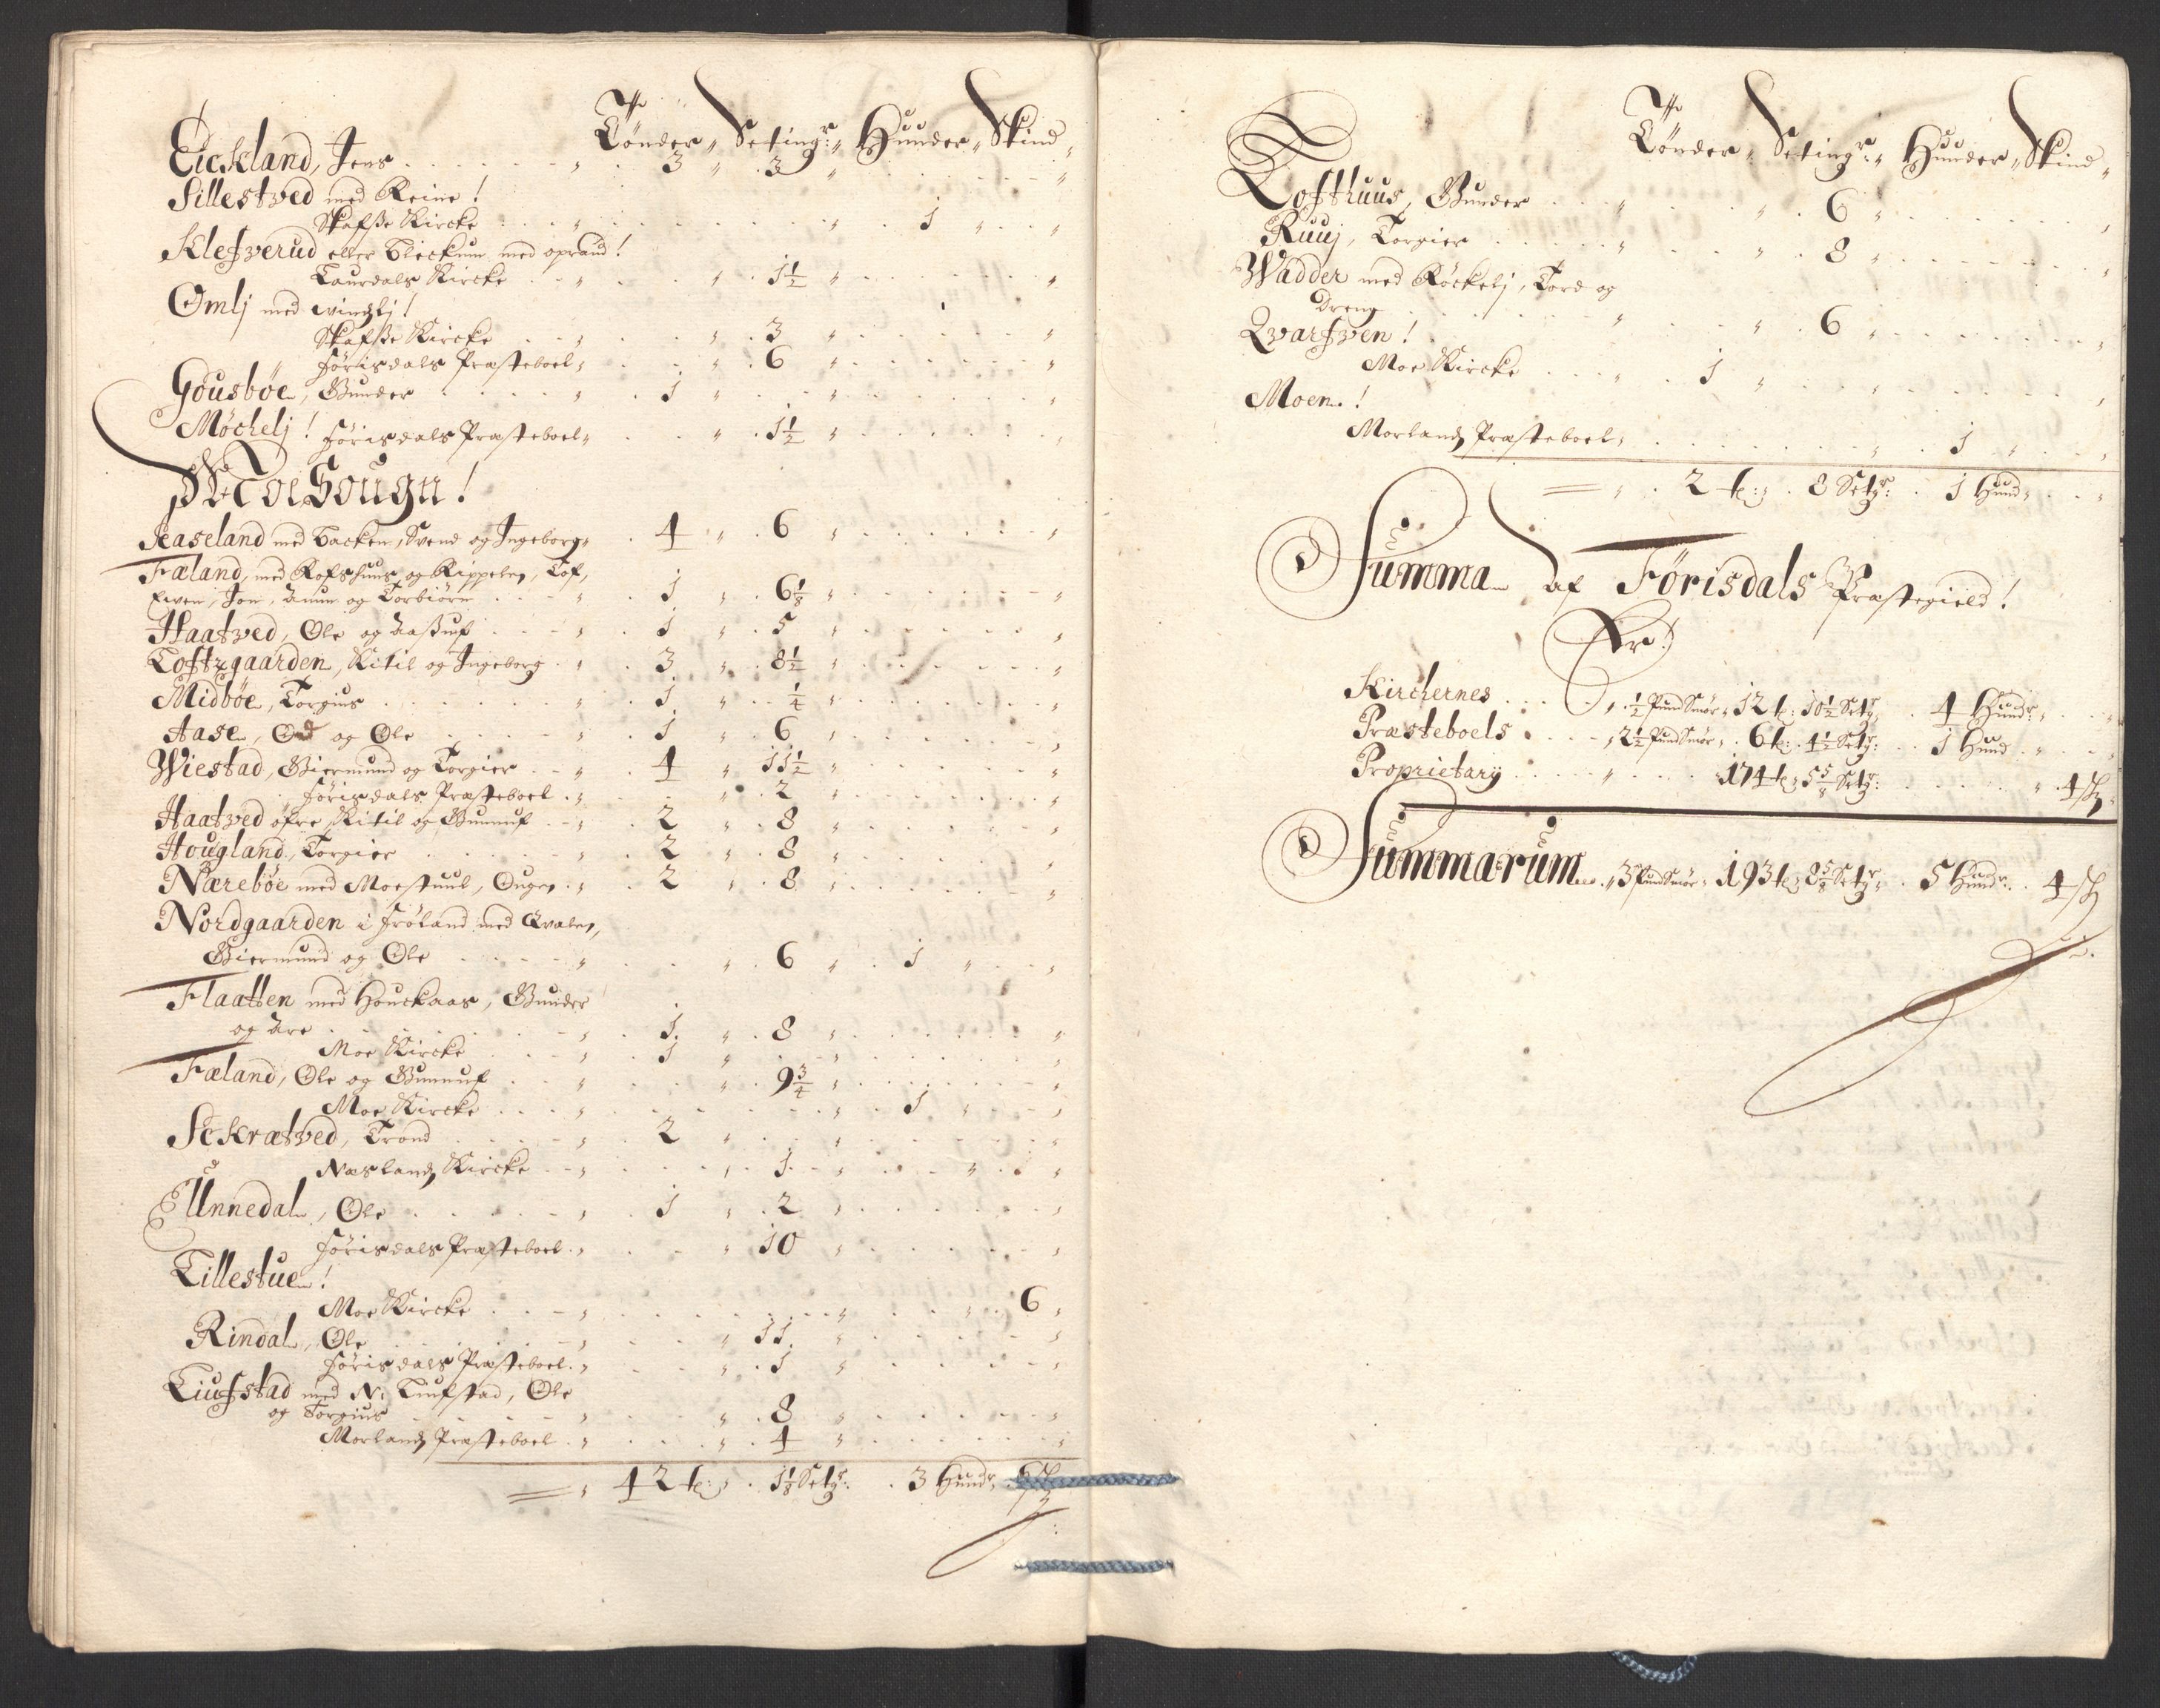 Tønder, Seting:r Huuder, Skind,
Eickland, Jens 3 3
Sillestved med Reine!
Skafsße Kircke 1
Klefverud eller Bleckum med opraud!
Laurdals Kircke 1½
Omlj med vindlj!
Skafsße Kircke 3
Førisdals Præsteboel 6
Gousbøe, Gunder 1
Møchelj! Førisdals Præsteboel 1½
Moe Sougn!
Raseland med Backen, Svend og Ingeborg 4 6
Fæland, med Rofshuus og Rippelen, Tof,
Even, Jon, Aanun og Torbiørn 1 6⅛
Haatved, Ole og Aaßuf 1 5
Toftzgaarden, Kitil og Ingeborg 3 8½
Midbøe, Torgius 1 ¼
Aase, Od og Ole 1 6
Wiestad, Giermund og Torgier 4 11½
Førisdals Præsteboel 2
Haatved øfre, Kitil og Gunnuf 2 8
Hougland, Torgier 2 8
Nærebøe med Moestuul, Ougen 2 8
Nordgaarden i Frøland med Qvalen,
Giermund og Ole 6 1
Flaatten med Houckaas, Gunder
og Are 1 8
Moe Kircke 1
Fæland, Ole og Gunnuf 9¾
Moe Kircke 1
Sckratved, Trond 2
Næslandz Kircke 1
Unnedal, Ole 1 2
Førisdals Præsteboel 10
Lillestue!
Moe Kircke 6
Rindal, Ole 11
Førisdals Præsteboel 1
Liufstad med N: Liufstad, Ole
og Torgius 8
Morlandz Præsteboel 4
42 t: 1⅛ Setg:r 3 Hund:r 6 sk
Tønder, Seting:r Huuder, Skind,
Tofthuus, Gunder 6
Ruuj, Torgier 8
Wadder med Røckelj, Tord og
Dreng 6
Qvarfven!
Moe Kircke 1
Moen!
Morlandz Præsteboel 1
2 t: 8 Setg:r 1 Huud
Summa af Førisdals Præstegield!
Er!
Kirckernes ½ Pund Smør, 12 t: 10½ Setg:r 4 Huudr
Præsteboels 2½ Pund Smør, 6 t: 4½ Setg:r 1 Huud
Proprietarij 174 t: 5⅝ Setg:r 4 sk
Summarum 3 Pund Smør, 193 t: 8⅝ Setg:r 5 Huudr 4 sk